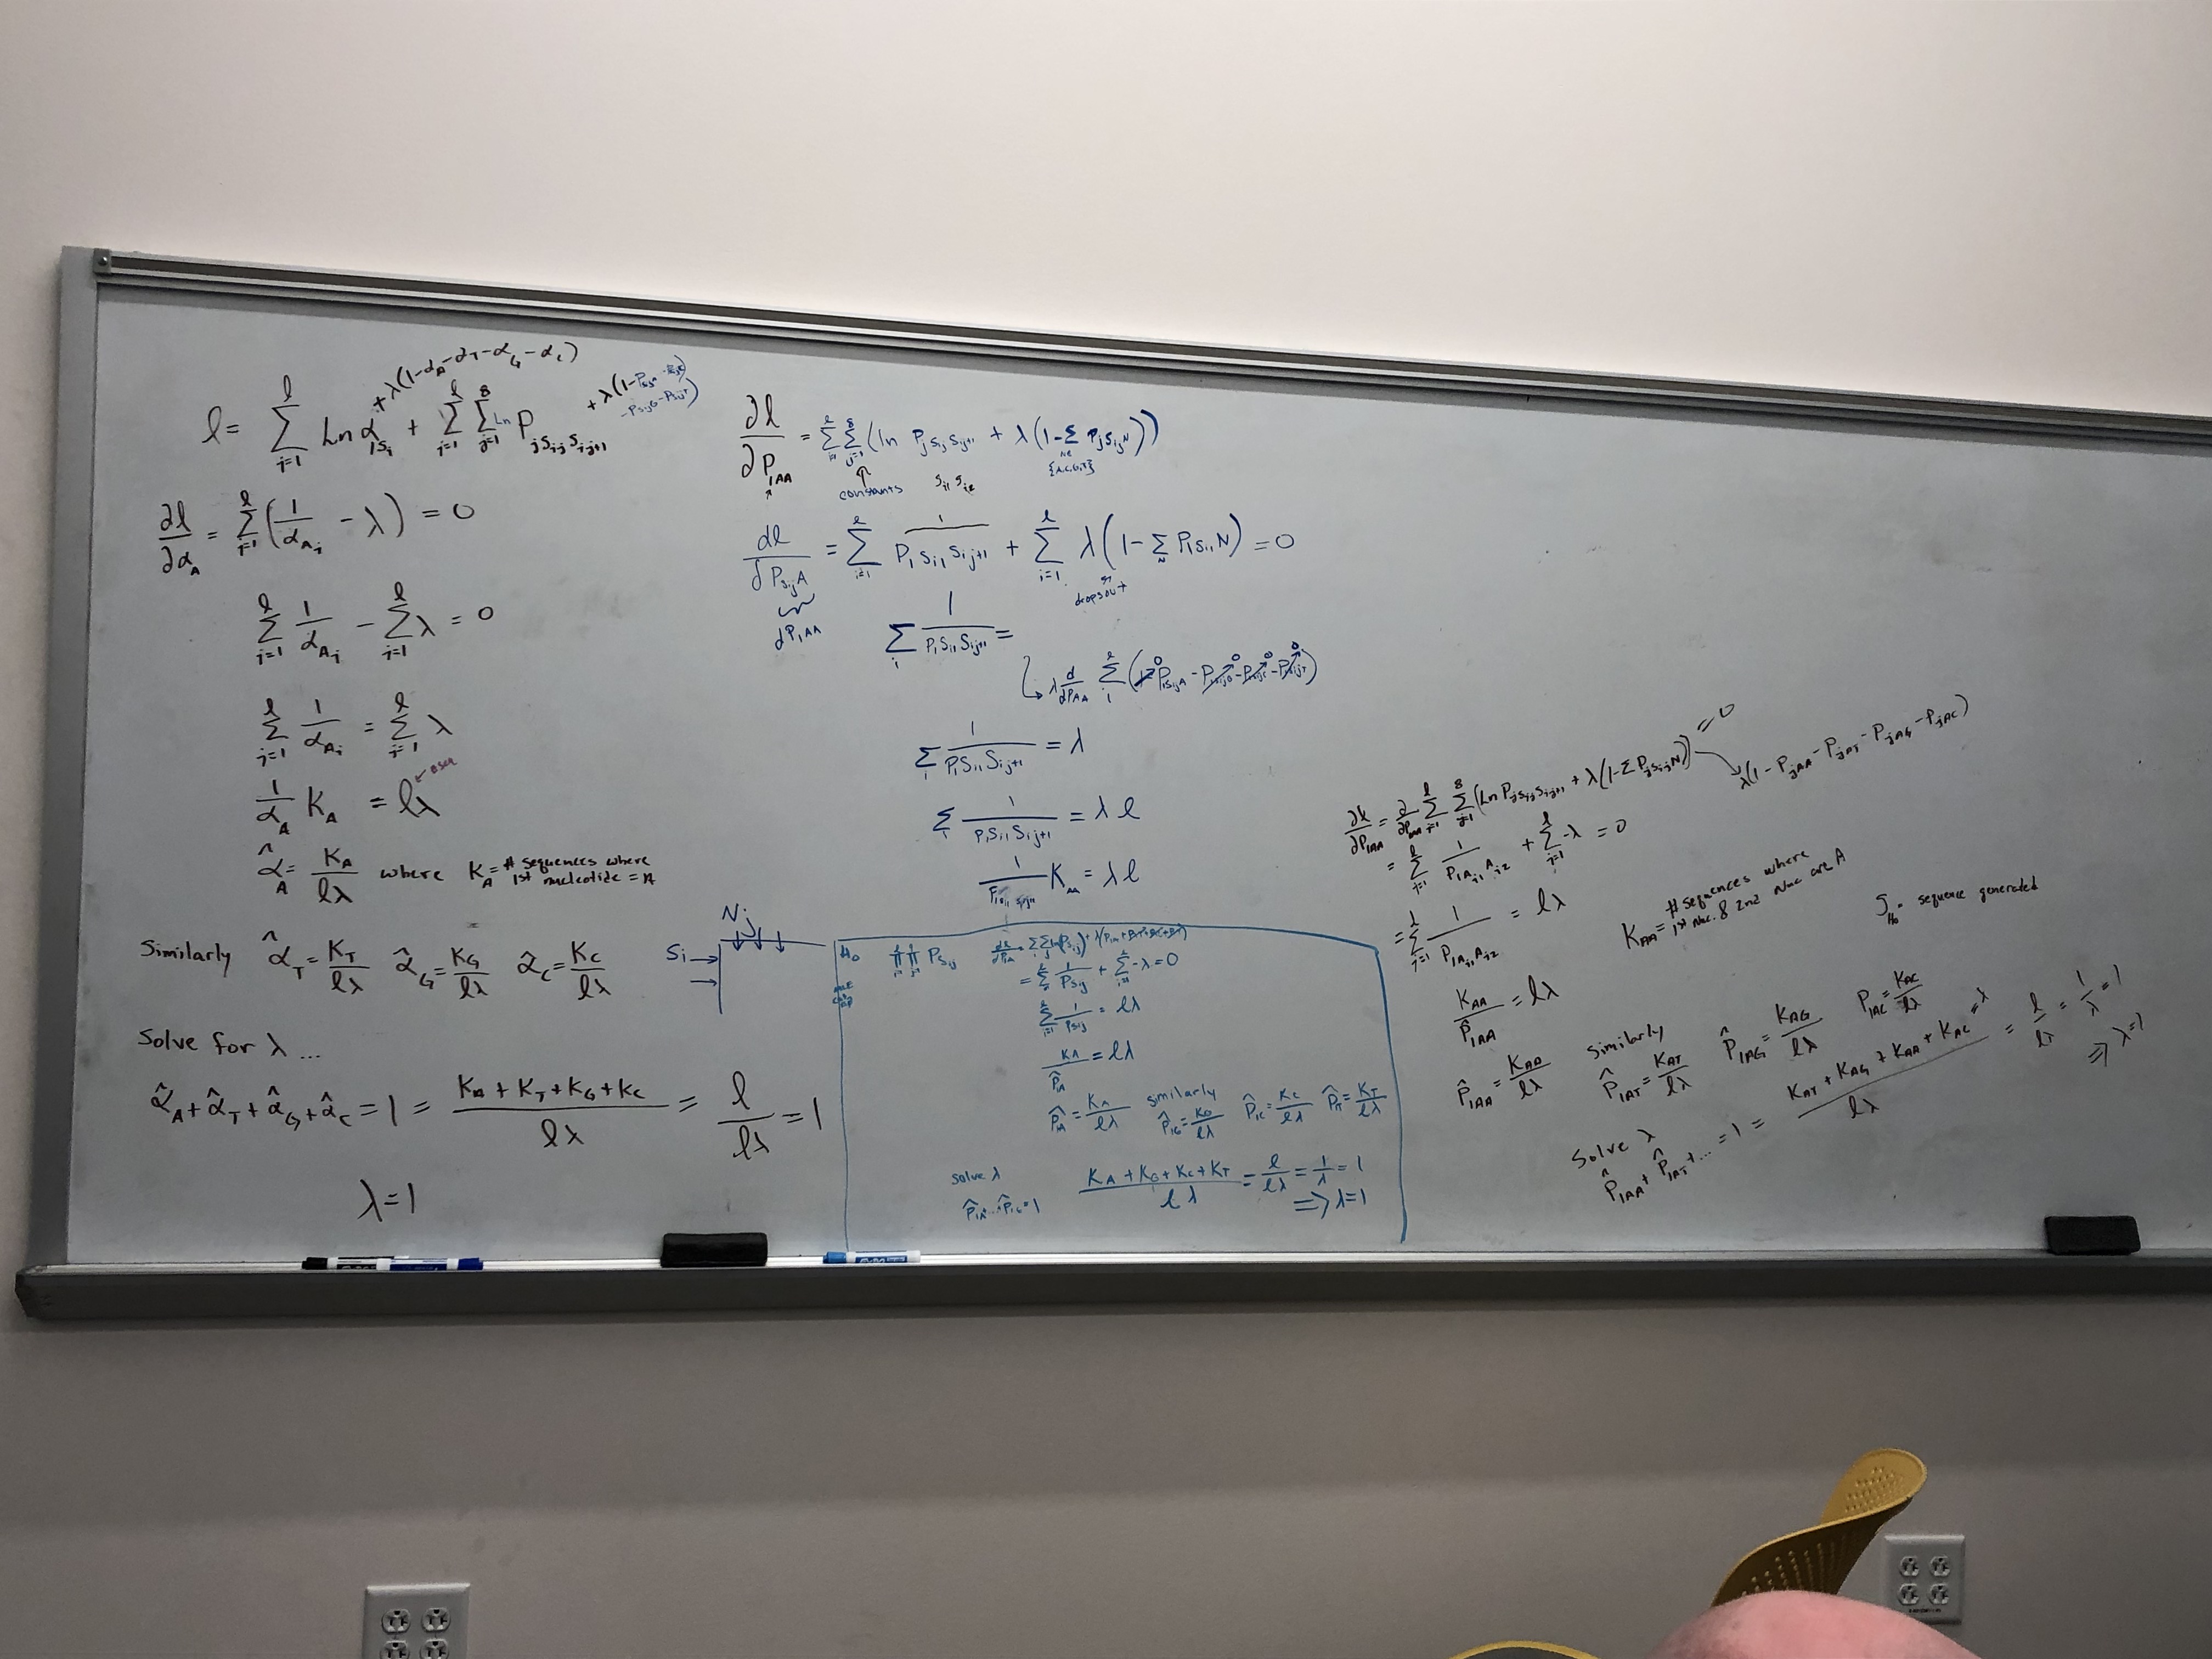 ℓ = Σ_{i=1}^{ℓ} Ln α_{1S_i} + λ(1-α_A-α_T-α_G-α_C) + Σ_{i=1}^{ℓ} Σ_{j=1}^{8} Ln P_{jS_{ij}S_{ij+1}}
∂ℓ/∂α_A = Σ_{i=1}^{ℓ} (1/α_{A_i} - λ) = 0
Σ_{i=1}^{ℓ} 1/α_{A_i} - Σ_{i=1}^{ℓ} λ = 0
Σ_{i=1}^{ℓ} 1/α_{A_i} = Σ_{i=1}^{ℓ} λ
1/α_A K_A = ℓλ
α̂_A = K_A/ℓλ where K_A = # sequences where 1st nucleotide = A
Similarly α̂_T = K_T/ℓλ α̂_G = K_G/ℓλ α̂_C = K_C/ℓλ
Solve for λ ...
α̂_A + α̂_T + α̂_G + α̂_C = 1 = (K_A + K_T + K_G + K_C)/ℓλ = ℓ/ℓλ = 1
λ = 1
∂ℓ/∂P_{1AA} = Σ_{i=1}^{ℓ} Σ_{j=1}^{8} (ln P_{jS_{ij}S_{ij+1}} + λ(1-Σ_{N∈{A,C,G,T}} P_{jS_{ij}N}))
constants S_{i1} S_{i2}
dℓ/dP_{S_{ij}A} = Σ_{i=1}^{ℓ} 1/P_{1S_{i1}S_{ij+1}} + Σ_{i=1}^{ℓ} λ(1-Σ_N P_{1S_{i1}N}) = 0
dP_{1AA}
drops out
Σ_i 1/P_{1S_{i1}S_{ij+1}} =
Σ_i 1/P_{1S_{i1}S_{ij+1}} = λ
Σ_i 1/P_{1S_{i1}S_{ij+1}} = λℓ
K_{AA} = λℓ
N_j
S_i →
→
H_0 Π_{i=1}^{ℓ} Π_{j=1} P_{S_{ij}}
= Σ_{i=1}^{ℓ} 1/P_{S_{ij}} + Σ_{i=1}^{ℓ} -λ = 0
Σ_{i=1}^{ℓ} 1/P_{S_{ij}} = ℓλ
K_A/P̂_{1A} = ℓλ
P̂_{1A} = K_A/ℓλ similarly P̂_{1G} = K_G/ℓλ P̂_{1C} = K_C/ℓλ P̂_{1T} = K_T/ℓλ
solve λ
P̂_{1A}...P̂_{1G} = 1 (K_A + K_G + K_C + K_T)/ℓλ = ℓ/ℓλ = 1/λ = 1
⟹ λ = 1
∂ℓ/∂P_{1AA} = ∂/∂P_{1AA} Σ_{i=1}^{ℓ} Σ_{j=1}^{8} (Ln P_{jS_{ij}S_{ij+1}} + λ(1-Σ P_{jS_{ij}N})) = 0
λ(1 - P_{jAA} - P_{jAT} - P_{jAG} - P_{jAC})
= Σ_{i=1}^{ℓ} 1/P_{1A_{i1}A_{i2}} + Σ_{i=1}^{ℓ} -λ = 0
= Σ_{i=1}^{ℓ} 1/P_{1A_{i1}A_{i2}} = ℓλ
K_{AA} = # sequences where 1st Nuc. & 2nd Nuc are A
sequence generated
K_{AA}/P̂_{1AA} = ℓλ
P̂_{1AA} = K_{AA}/ℓλ similarly P̂_{1AT} = K_{AT}/ℓλ P̂_{1AG} = K_{AG}/ℓλ P_{1AC} = K_{AC}/ℓλ
Solve λ
P̂_{1AA} + P̂_{1AT} + ... = 1 = (K_{AT} + K_{AG} + K_{AA} + K_{AC})/ℓλ = ℓ/ℓλ = 1/λ = 1
⟹ λ = 1